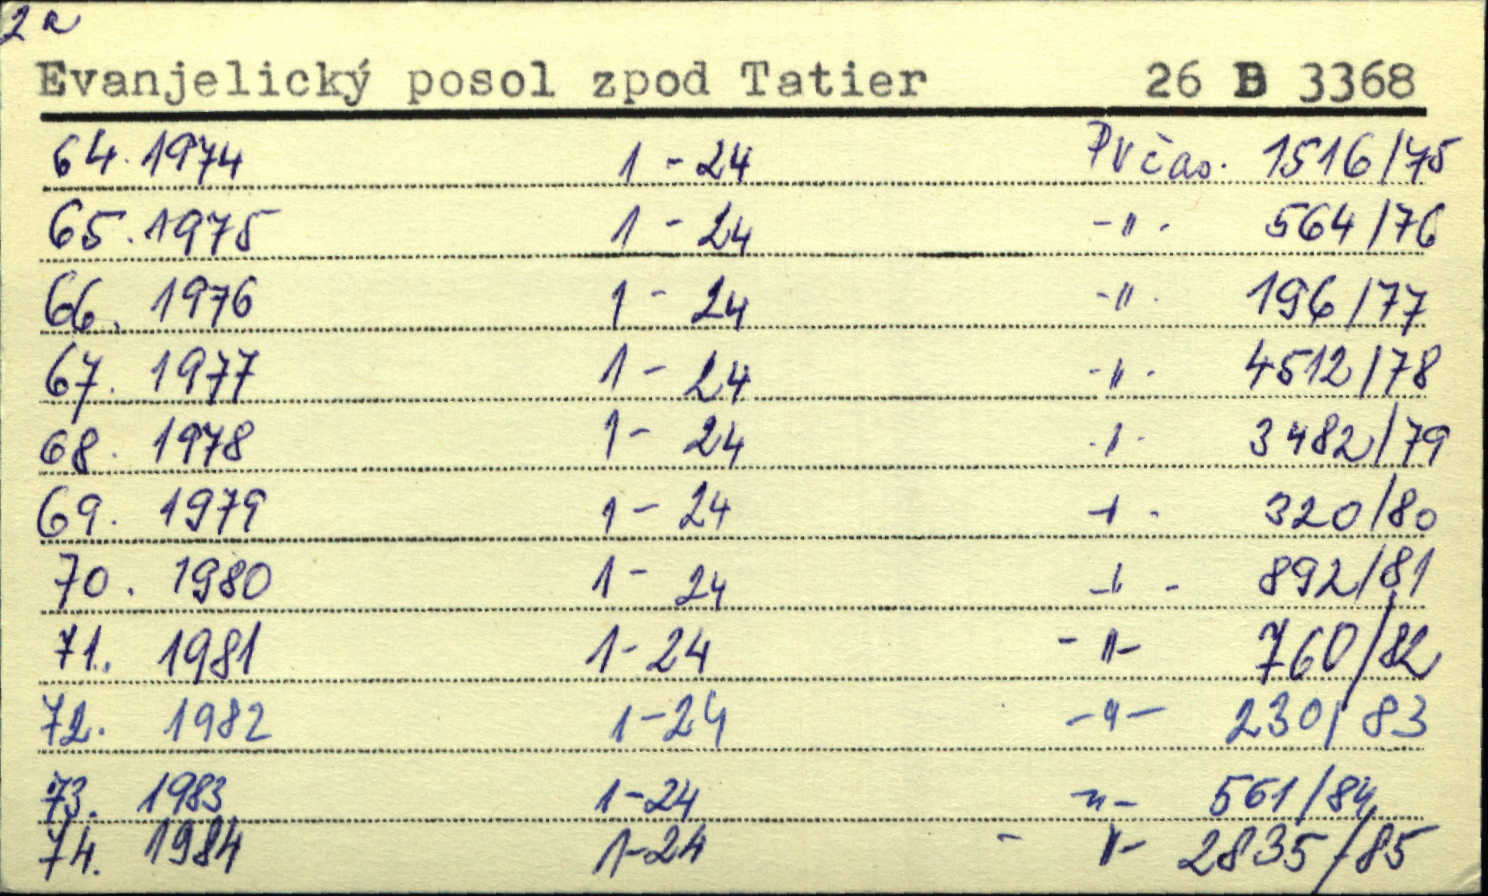 2a
Evanjelický posol zpod Tatier 26 B 3368
64. 1974 1 - 24 PV čas. 1516/75
65. 1975 1 - 24 -"- 564/76
66. 1976 1 - 24 -"- 196/77
67. 1977 1 - 24 -"- 4512/78
68. 1978 1 - 24 -"- 3482/79
69. 1979 1 - 24 -"- 320/80
70. 1980 1 - 24 -"- 892/81
71. 1981 1-24 -"- 760/82
72. 1982 1-24 -"- 230/83
73. 1983 1-24 -"- 561/84
74. 1984 1-24 -"- 2835/85